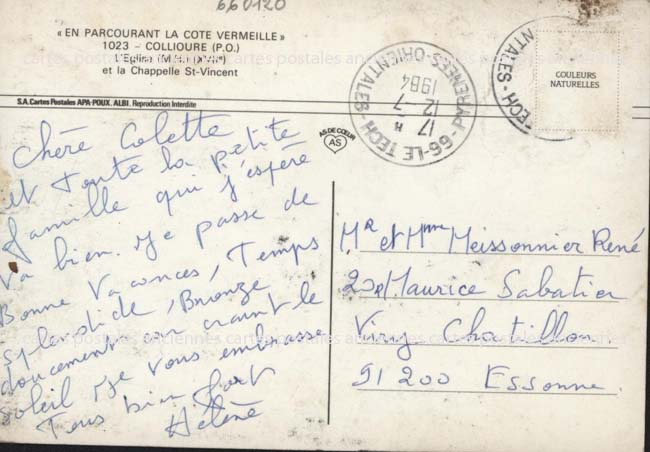 660120
« EN PARCOURANT LA COTE VERMEILLE »
1023 - COLLIOURE (P.O.)
L'Eglise
et la Chappelle St-Vincent
S.A. Cartes Postales APA-POUX. ALBI. Reproduction Interdite
AS DE CŒUR
AS
66-LE TECH - PYRENEES-ORIENTALES
17 H
12-7
1984
TECH -
NTALES
COULEURS
NATURELLES
Chère Colette
et toute la petite
famille qui j'espère
va bien. Je passe de
Bonne Vacances, Temps
splendide, Bronze
doucement car craint le
soleil Je vous embrasse
Tous bien fort
Hélène
MR et Mme Meissonnier René
Maurice Sabatier
Viry Chatillon
91 200 Essonne.
cartes postales anciennes cartes postales anciennes cartes postales anciennes
cartes postales anciennes cartes postales anciennes cartes postales anciennes